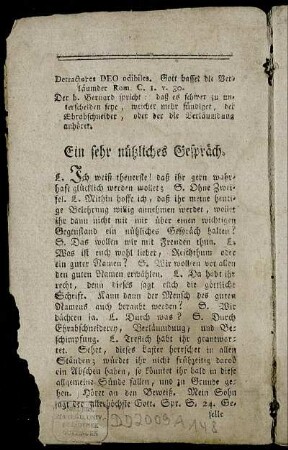 Detractores DEO odibiles. Gott hasset die Ver-
läumder Rom. C. 1. v. 30.
Der h. Bernard spricht: daß es schwer zu un-
terscheiden seye, welcher mehr sündiget, der
Ehrabschneider, oder der die Verläumdung
anhöret.
Ein sehr nützliches Gespräch.
L. Ich weiß theuerste! daß ihr gern wahr-
haft glücklich werden wollet; S. Ohne Zwei-
fel. L. Mithin hoffe ich, daß ihr meine heuti-
ge Belehrung willig annehmen werdet, wollet
ihr dann nicht mit mir über einen wichtigen
Gegenstand ein nützliches Gespräch halten?
S. Das wollen wir mit Freuden thun. L.
Was ist euch wohl lieber, Reichthum oder
ein guter Namen? S. Wir wollen vor allen
den guten Namen erwählen. L. Da habt ihr
recht, denn dieses sagt euch die göttliche
Schrift. Kann dann der Mensch des guten
Namens auch beraubt werden? S. Wir
dächten ja. L. Durch was? S. Durch
Ehrabschneideren, Verläumdung, und Be-
schimpfung. L. Treflich habt ihr geantwor-
tet. Sehet, dieses Laster herrschet in allen
Ständen; würdet ihr nicht frühzeitig darob
ein Abscheu haben, so könntet ihr bald in diese
allgemeine Sünde fallen, und zu Grunde ge-
hen. Höret an den Beweiß. Mein Sohn
sagt der allerhöchste Gott. Spr. S. 24. Ge-
selle
DD2003A148